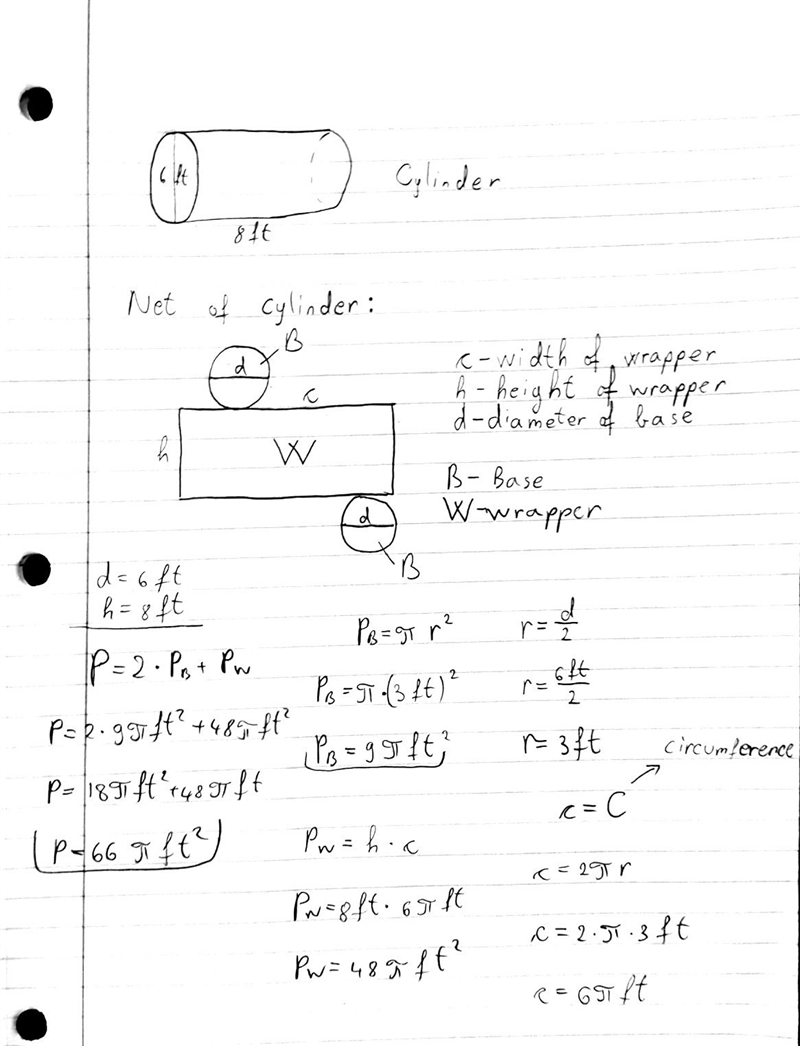 6 ft
Cylinder
8 ft
Net of cylinder:
B
d
c
h
W
d
B
c - width of wrapper
h - height of wrapper
d - diameter of base
B - Base
W - wrapper
d = 6 ft
h = 8 ft
P = 2 · P_B + P_W
P = 2 · 9π ft² + 48π ft²
P = 18π ft² + 48π ft
P = 66 π ft²
P_B = π r²
P_B = π · (3 ft)²
P_B = 9π ft²
r = d/2
r = 6ft/2
r = 3 ft
circumference
c = C
P_W = h · c
P_W = 8 ft · 6π ft
P_W = 48π ft²
c = 2π r
c = 2 · π · 3 ft
c = 6π ft